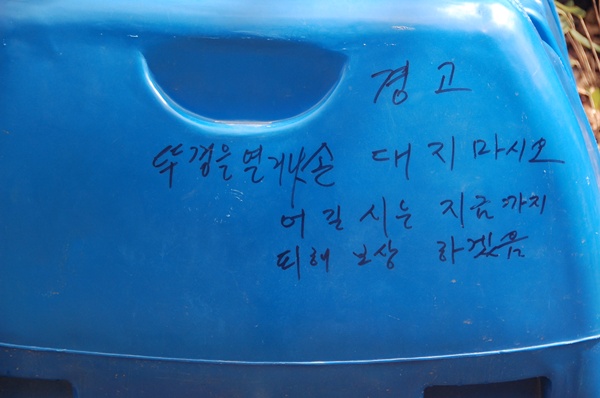 경고
뚜껑을 열거나 손 대지마시오
어길시는 지금까지
피해 보상 하겠음